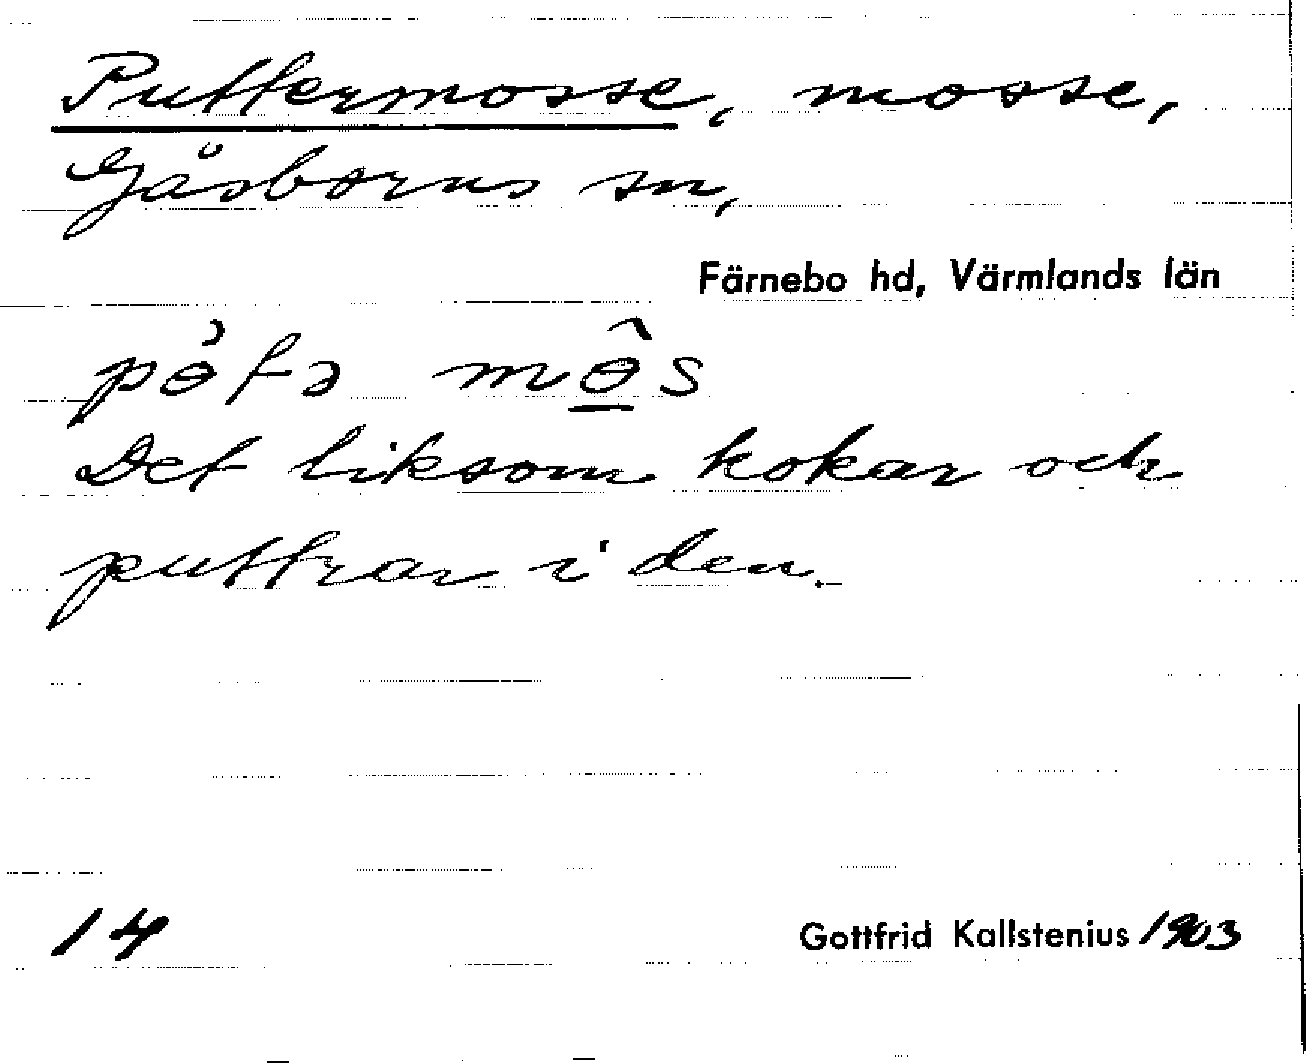 Puttermosse, mosse,
Gåsborns sn,
Färnebo hd, Värmlands län
pɵ̀tə mɵ̲̂s
Det liksom kokar och
puttrar i den.
14 Gottfrid Kallstenius 1903